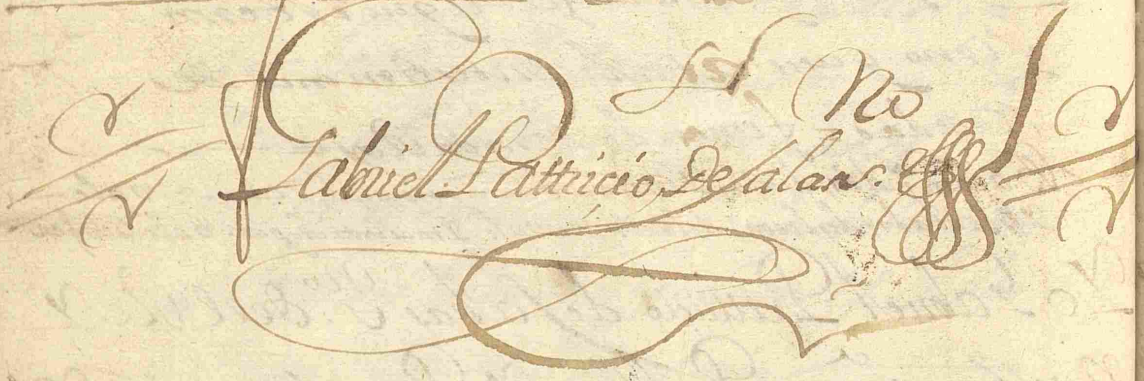 El No
Gabriel Pattricio, De Salas.